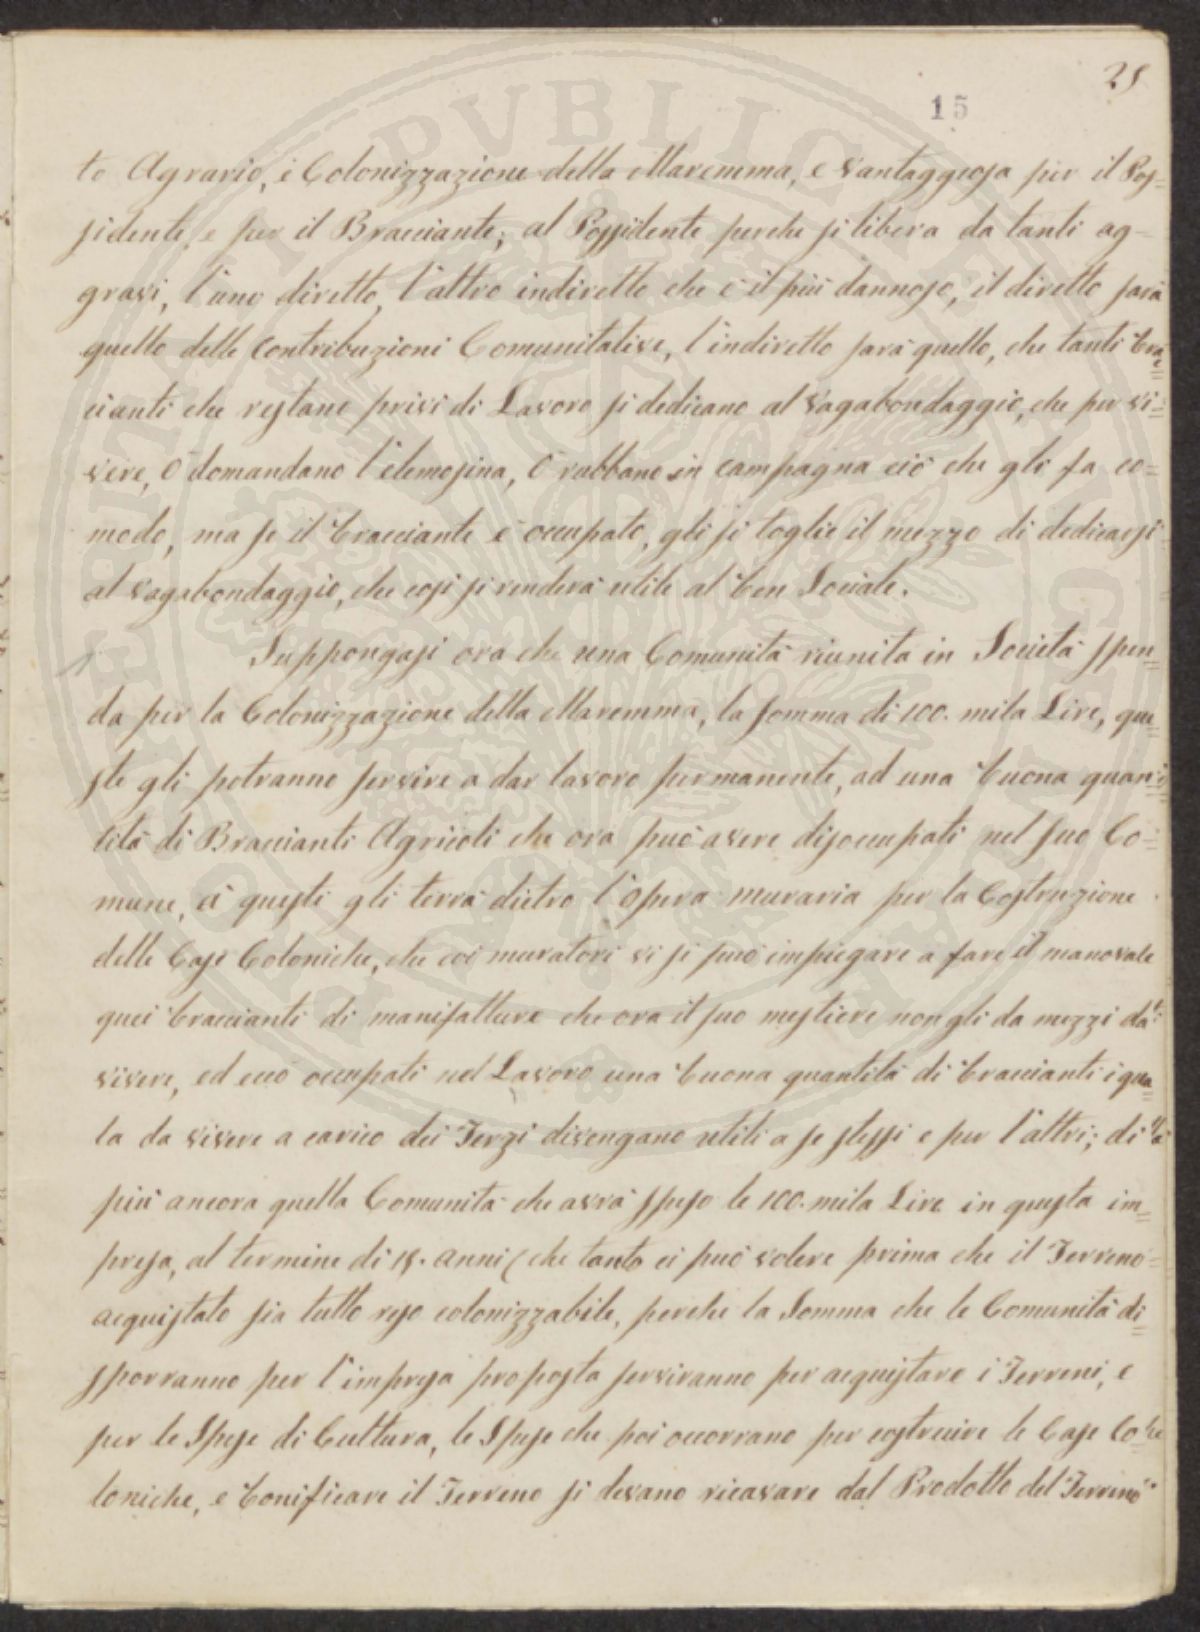 25
15
to Agrario, è Colonizzazione della Maremma, e Vantaggiosa per il Pos-
sidente, e per il Bracciante; al Possidente perche si libera da tanti ag-
gravi, l'uno diretto, l'altro indiretto che è il più dannoso, il diretto sarà
quello delle Contribuzioni Comunitative, l'indiretto sarà quello, che tanti brac=
cianti che restano privi di Lavoro si dedicano al Vagabondaggio, che per vi=
vere, ò domandano l'elemosina, ò rubbano in campagna ciò che gli fa co=
modo, ma se il bracciante è occupato, gli si toglie il mezzo di dedicarsi
al vagabondaggio, che cosi si renderà utile al ben Sociale.
Suppongasi ora che una Comunità riunita in Società spen=
da per la Colonizzazione della Maremma, la somma di 100. mila Lire, que=
ste gli potranno servire a dar lavoro permanente, ad una buona quan=
tità di Braccianti Agricoli che ora può avere disoccupati nel suo Co=
mune, à questi gli terrà dietro l'opera muraria per la Costruzione
delle Case Coloniche, che coi muratori vi si può impiegare a fare il manovale
quei braccianti di manifatture che ora il suo mestiere non gli da mezzi da
vivere, ed ecco occupati nel Lavoro una buona quantità di braccianti i qua=
la da vivere a carico dei Terzi divengano utili a se stessi e per l'altri; di
più ancora quella Comunità che avrà speso le 100. mila Lire in questa im=
presa, al termine di 15. anni (che tanto ci può volere prima che il Terreno
acquistato sia tutto reso colonizzabile, perche la Somma che le Comunità di=
sporranno per l'impresa proposta serviranno per acquistare i Terreni, e
per le Spese di Cultura, le Spese che poi occorrano per costruire le Case Co=
loniche, e bonificare il Terreno si devano ricavare dal Prodotto del Terreno